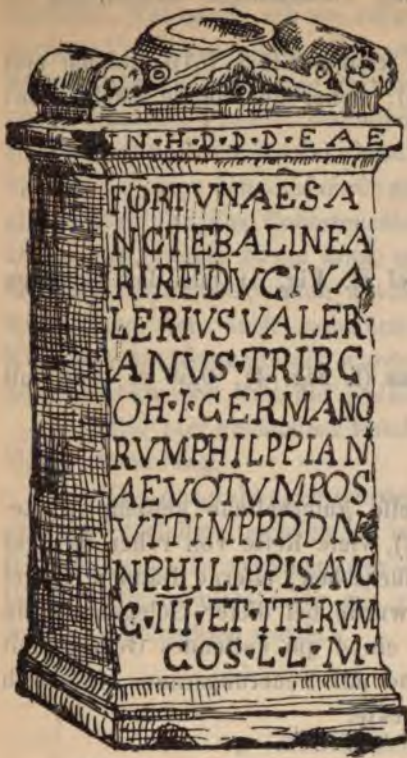 IN·H·D·D·D·EAE
FORTVNAESA
NCTEBALINEA
RIREDVCIVA
LERIVSVALER
ANVS·TRIBC
OH·I·GERMANO
RVMPHILPPIAN
AEVOTVMPOS
VITIMPPDDN
NPHILIPPISAVG
G·III·ET·ITERVM
COS·L·L·M·